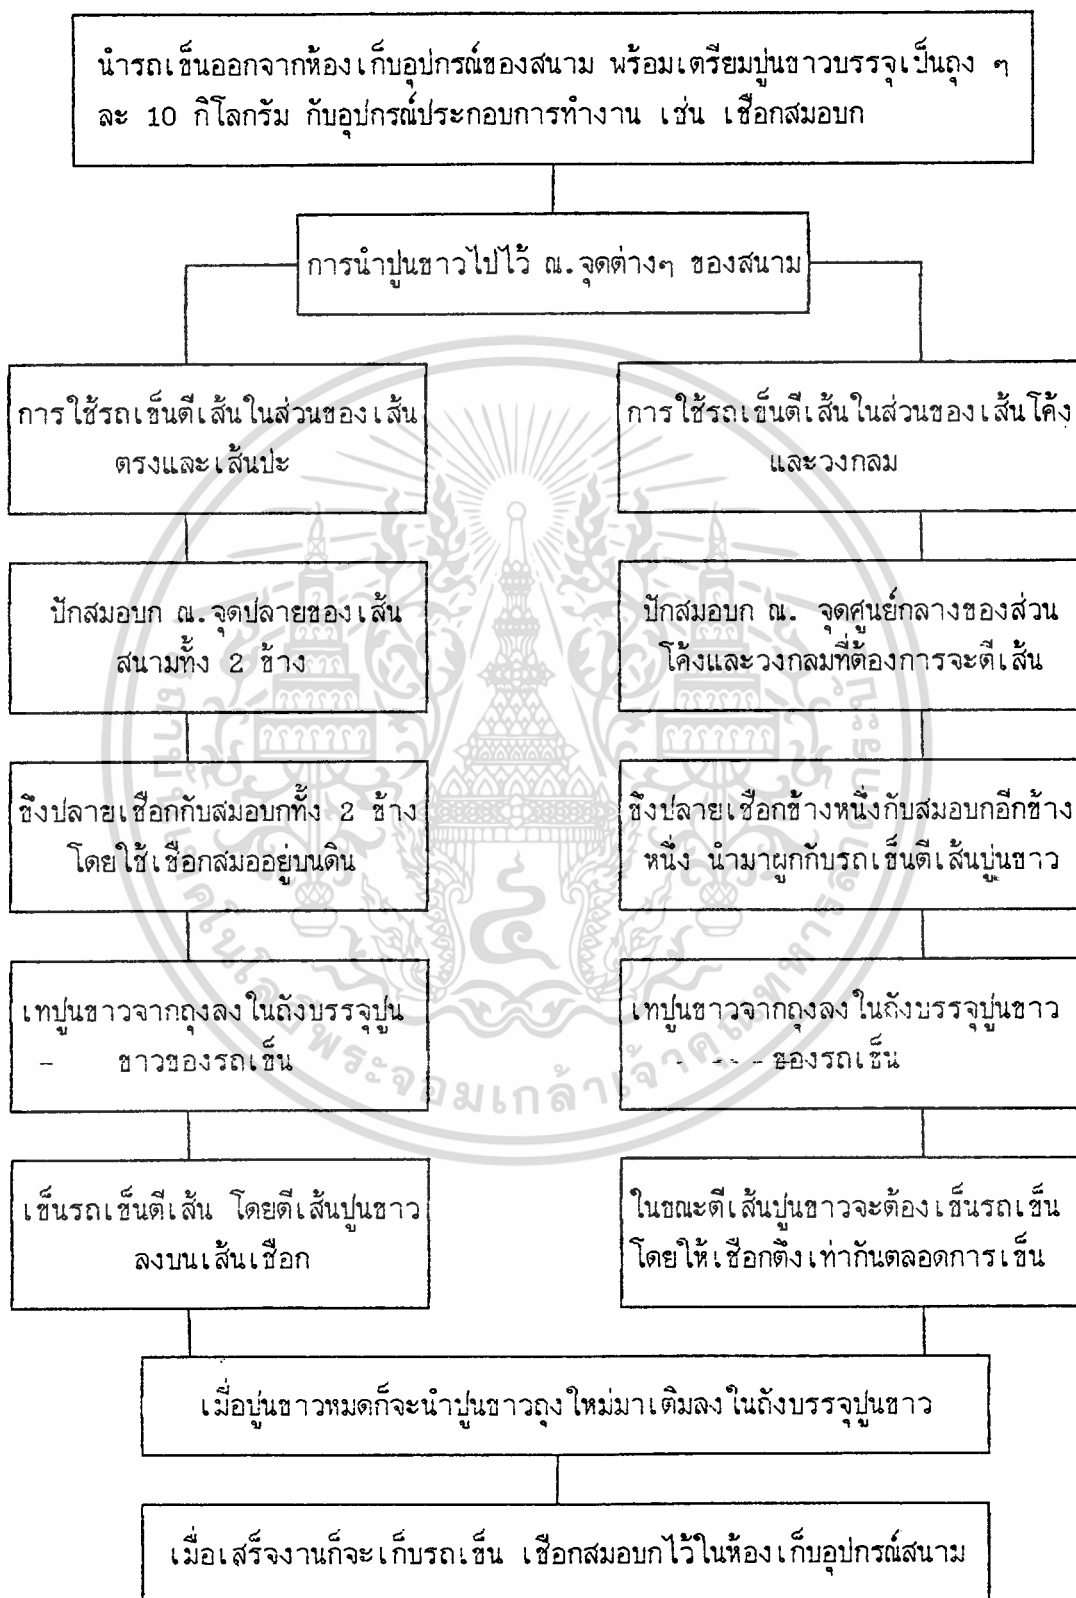 นำรถเข็นออกจากห้องเก็บอุปกรณ์ของสนาม พร้อมเตรียมปูนขาวบรรจุเป็นถุง ๆ
ละ 10 กิโลกรัม กับอุปกรณ์ประกอบการทำงาน เช่น เชือกสมอบก
การนำปูนขาวไปไว้ ณ.จุดต่างๆ ของสนาม
การใช้รถเข็นตีเส้นในส่วนของเส้น
ตรงและเส้นปะ
ปักสมอบก ณ.จุดปลายของเส้น
สนามทั้ง 2 ข้าง
ขึงปลายเชือกกับสมอบกทั้ง 2 ข้าง
โดยใช้เชือกสมออยู่บนดิน
เทปูนขาวจากถุงลงในถังบรรจุปูน
ขาวของรถเข็น
เข็นรถเข็นตีเส้น โดยตีเส้นปูนขาว
ลงบนเส้นเชือก
การใช้รถเข็นตีเส้นในส่วนของเส้นโค้ง
และวงกลม
ปักสมอบก ณ. จุดศูนย์กลางของส่วน
โค้งและวงกลมที่ต้องการจะตีเส้น
ขึงปลายเชือกข้างหนึ่งกับสมอบกอีกข้าง
หนึ่ง นำมาผูกกับรถเข็นตีเส้นปูนขาว
เทปูนขาวจากถุงลงในถังบรรจุปูนขาว
ของรถเข็น
ในขณะตีเส้นปูนขาวจะต้องเข็นรถเข็น
โดยให้เชือกตึงเท่ากันตลอดการเข็น
เมื่อปูนขาวหมดก็จะนำปูนขาวถุงใหม่มาเติมลงในถังบรรจุปูนขาว
เมื่อเสร็จงานก็จะเก็บรถเข็น เชือกสมอบกไว้ในห้องเก็บอุปกรณ์สนาม
พระจอมเกล้าเจ้าคุณทหารลาดกระบัง